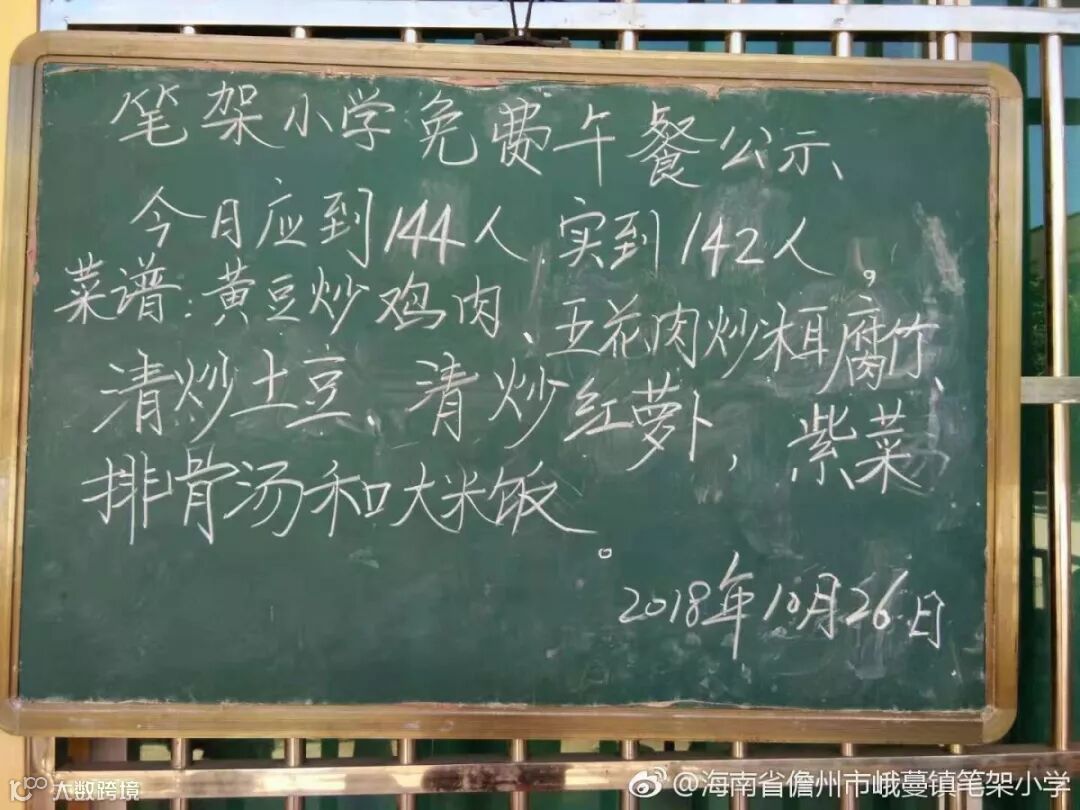 笔架小学免费午餐公示、
今日应到144人,实到142人。
菜谱:黄豆炒鸡肉、五花肉炒木耳腐竹、
清炒土豆、清炒红萝卜,紫菜
排骨汤和大米饭。
2018年10月26日
大数跨境
@海南省儋州市峨蔓镇笔架小学